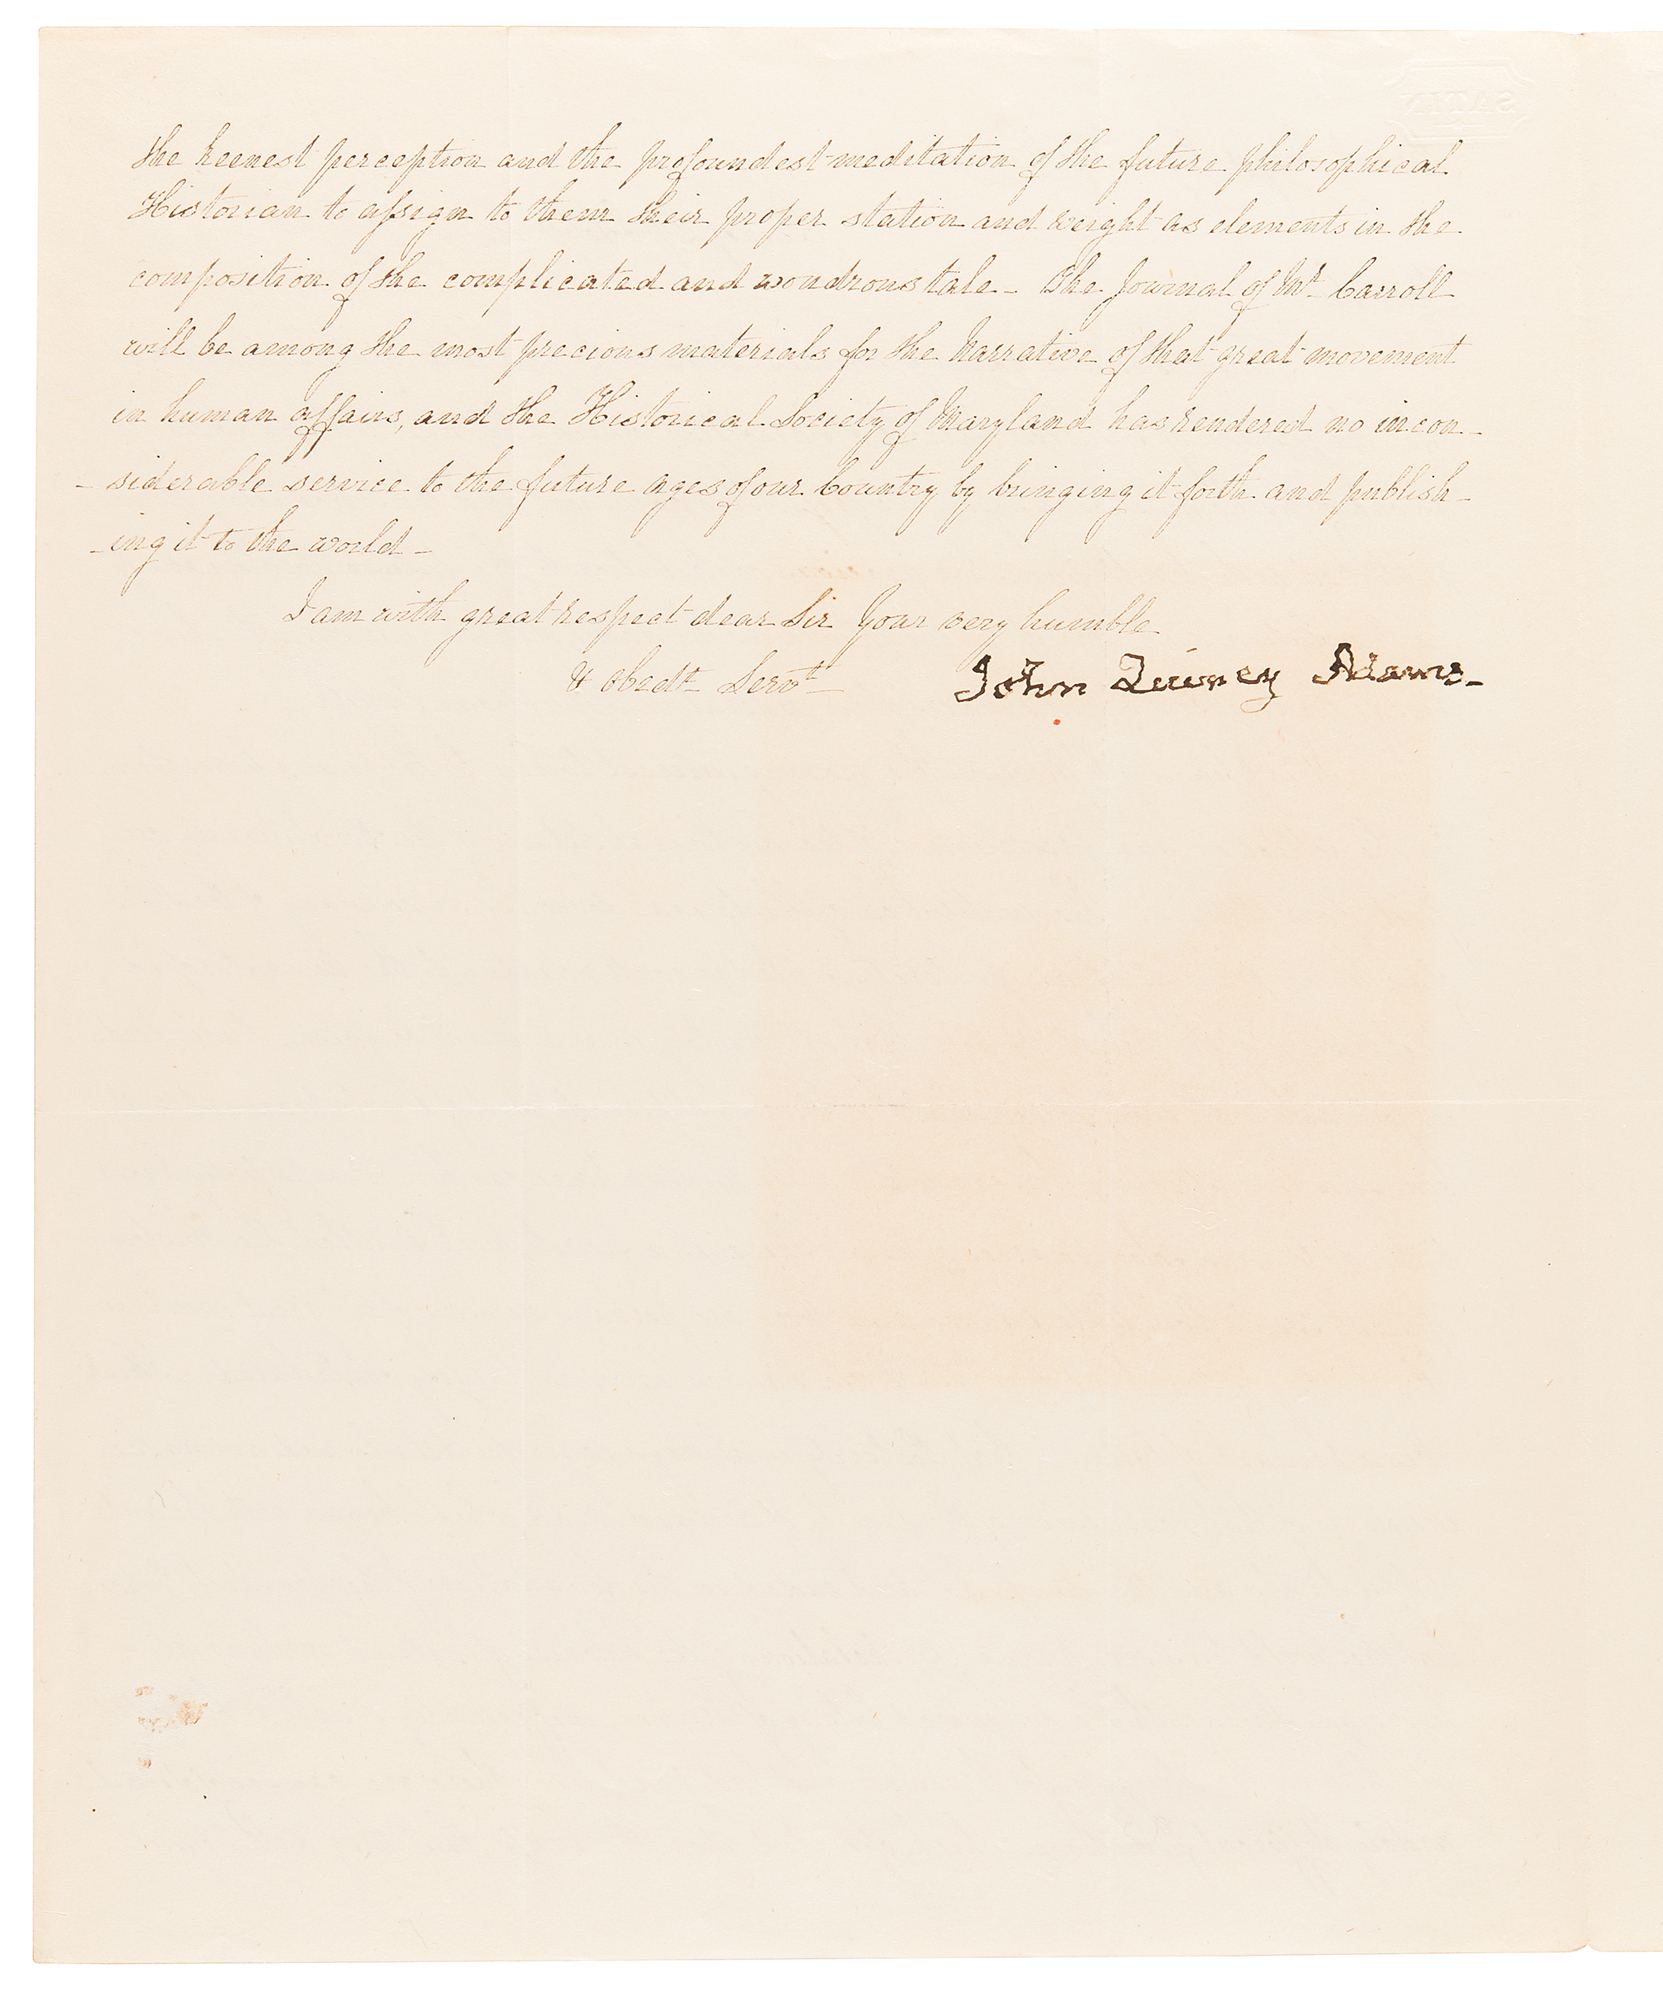 SATIN
the keenest perception and the profoundest meditation of the future philosophical
Historian to assign to them their proper station and weight as elements in the
composition of the complicated and wondrous tale - The Journal of Mr. Carroll
will be among the most precious materials for the Narrative of that great movement
in human affairs, and the Historical Society of Maryland has rendered no incon-
-siderable service to the future ages of our Country by bringing it forth and publish-
-ing it to the world -
I am with great respect dear Sir Your very humble
& Obedt. Servt.
John Quincy Adams -